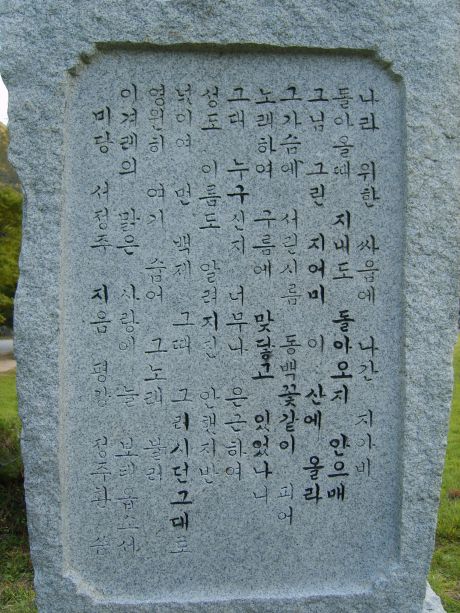 나라 위한 싸움에 나간 지아비
돌아올때 지내도 돌아오지 안으매
그님 그린 지어미 이 산에 올라
그가슴에 서린시름 동백꽃같이 피어
노래하여 구름에 맞닿고 있었나니
그대 누구신지 너무나 은근하여
성도 이름도 알려지진 안했지만
넋이여 먼 백제 그때 그러시던그대로
영원히 여기 숨어 그노래 불러
이겨레의 맑은 사랑에 늘 보태옵소서
미당 서정주 지음 정주화 씀